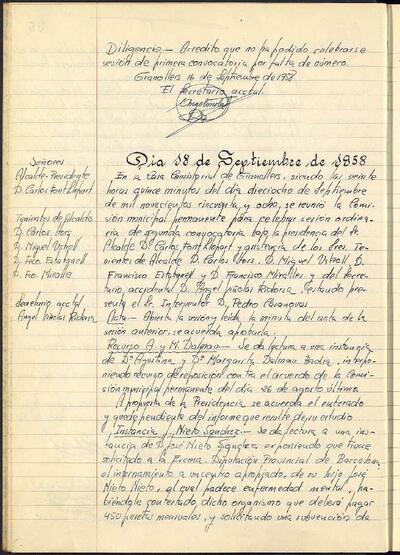 Diligencia.- Acredito que no ha podido celebrarse
sesión de primera convocatoria por falta de número.
Granollers 16 de Septiembre de 1958
El Secretario acctal.
Día 18 de Septiembre de 1958
Señores
Alcalde-Presidente
D. Carlos Font Llopart
Tenientes de Alcalde
D. Carlos
D. Miquel
D. Fco. Estabanell
D. Fco. Miralles
Secretario acctal
Angel Piñolas Riedoria
En la Casa Consistorial de Granollers, siendo las veinte
horas quince minutos del día dieciocho de Septiembre
de mil novecientos cincuenta y ocho, se reunió la Comi-
sión municipal permanente para celebrar sesión ordina-
ria de segunda convocatoria bajo la presidencia del Sr.
Alcalde D. Carlos Font Llopart y asistencia de los Sres. Te-
nientes de Alcalde D. Carlos D. Miquel D.
Francisco Estabanell y D. Francisco Miralles y del Secre-
tario, accidental D. Angel Piñolas estando pre-
sente el Sr. Interventor D. Pedro
Acta- Abierta la sesión y leída la minuta del acta de la
sesión anterior, se acuerda aprobarla.
Recurso A. y M. Dalmau.- Se da lectura a una instancia
de Dª Agustina y Dª Margarita Dalmau interpo-
niendo recurso de reposición contra el acuerdo de la Comi-
sión municipal permanente del día 26 de agosto último.
A propuesta de la Presidencia se acuerda el enterado
y quede pendiente del informe que resulte de su estudio
Instancia J. Nieto Sanchez.- Se da lectura a una ins-
tancia de D. José Nieto Sanchez exponiendo que tiene
solicitado a la Excma. Diputación Provincial de Barcelona
el internamiento a un centro apropiado, de su hijo José
Nieto Nieto, el cual padece enfermedad mental, ha-
biéndole contestado, dicho organismo que deberá pagar
450 pesetas mensuales, y solicitando una subvención de